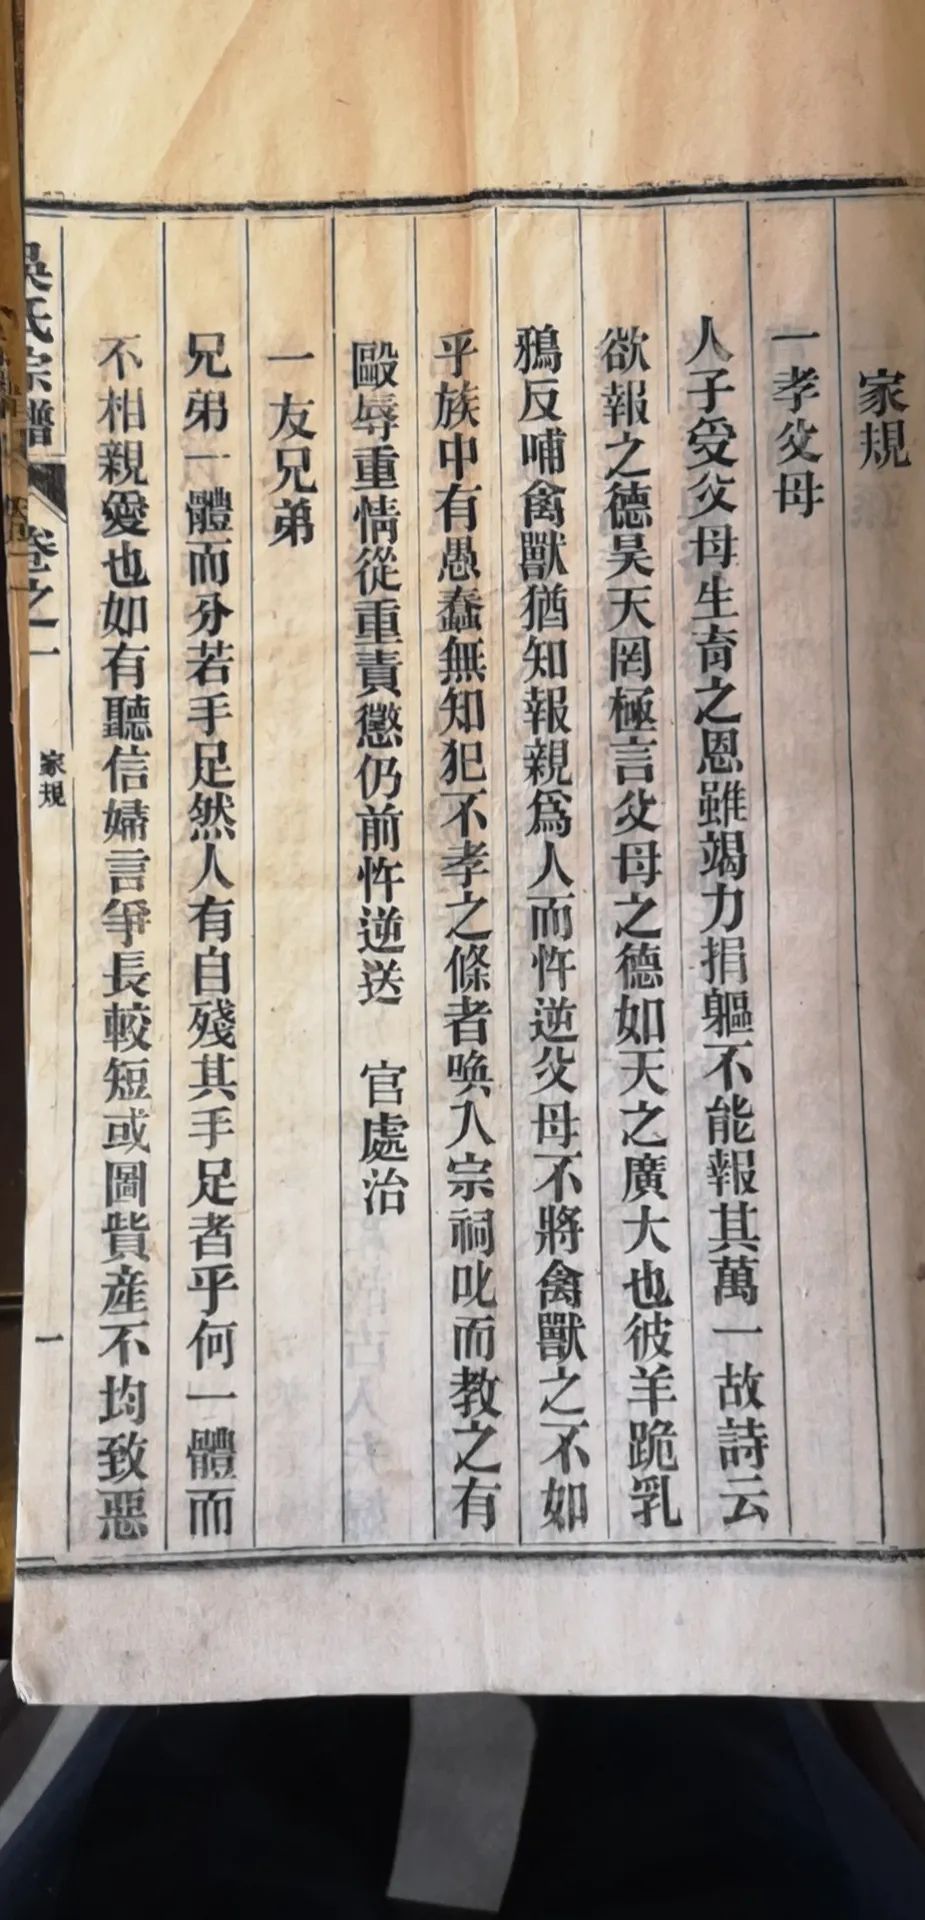 家規
一孝父母
人子受父母生育之恩雖竭力捐軀不能報其萬一故詩云
欲報之德昊天罔極言父母之德如天之廣大也彼羊跪乳
鴉反哺禽獸猶知報親爲人而忤逆父母不將禽獸之不如
乎族中有愚蠢無知犯不孝之條者喚入宗祠叱而教之有
毆辱重情從重責懲仍前忤逆送 官處治
一友兄弟
兄弟一體而分若手足然人有自殘其手足者乎何一體而
不相親愛也如有聽信婦言爭長較短或圖貲產不均致惡
吳氏宗譜 卷之一 家規 一